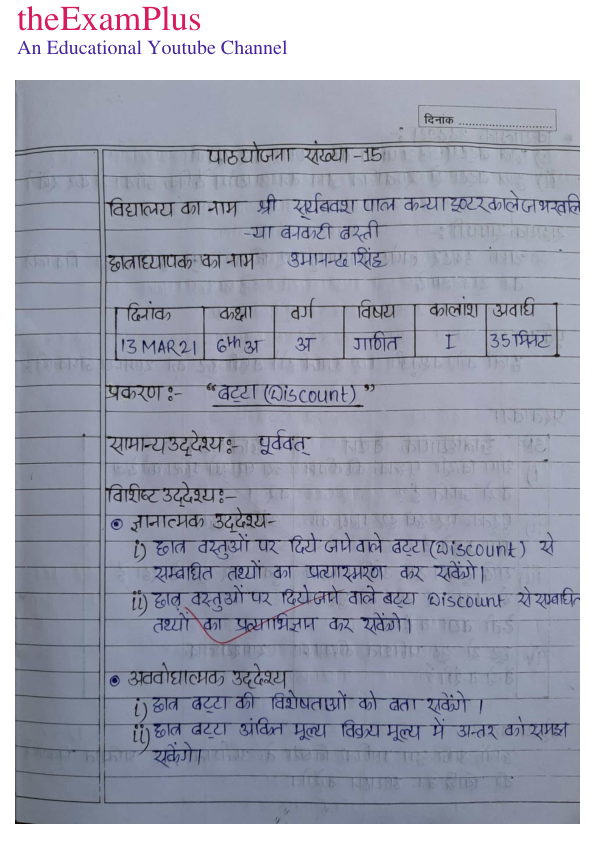 theExamPlus
An Educational Youtube Channel
दिनांक ........................
पाठयोजना संख्या -15
विद्यालय का नाम श्री सूर्यबक्श पाल कन्या इण्टरकालेज भरवलि
-या बनकटी बस्ती
छात्राध्यापक का नाम उमानन्द सिंह
दिनांक कक्षा वर्ग विषय कालांश अवधि
13 MAR 21 6th अ अ गणित I 35 मिनट
प्रकरण :- "बट्टा (Discount)"
सामान्य उद्देश्य :- पूर्ववत्
विशिष्ट उद्देश्य :-
ज्ञानात्मक उद्देश्य-
i) छात्र वस्तुओं पर दिये जाने वाले बट्टा (Discount) से
सम्बंधित तथ्यों का प्रत्यास्मरण कर सकेंगे।
ii) छात्र वस्तुओं पर दिये जाने वाले बट्टा Discount से सम्बंधित
तथ्यों का प्रत्याभिज्ञान कर सकेंगे।
अवबोधात्मक उद्देश्य
i) छात्र बट्टा की विशेषताओं को बता सकेंगे।
ii) छात्र बट्टा अंकित मूल्य विक्रय मूल्य में अन्तर को समझ
सकेंगे।